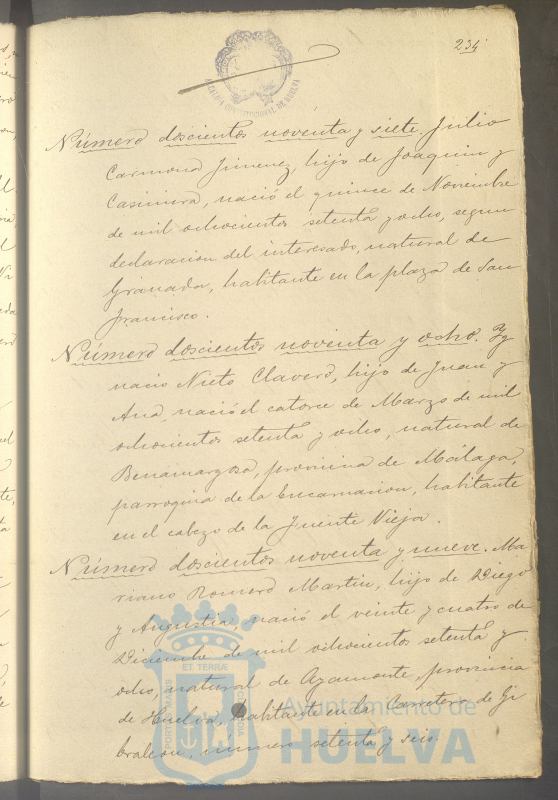 234
ALCALDIA CONSTITUCIONAL DE HUELVA
Número doscientos noventa y siete. Julio
Carmona Jimenez, hijo de Joaquin y
Casimira, nació el quince de Noviembre
de mil ochocientos setenta y ocho, segun
declaracion del interesado, natural de
Granada, habitante en la plaza de San
Francisco.
Número doscientos noventa y ocho. Yg
nacio Nieto Clavero, hijo de Juan y
Ana, nació el catorce de Marzo de mil
ochocientos setenta y ocho, natural de
Benamargosa, provincia de Málaga,
parroquia de la Encarnacion, habitante
en el cabezo de la Fuente Vieja.
Número doscientos noventa y nueve. Ma
riano Romero Martin, hijo de Diego
y Augustia, nació el veinte y cuatro de
Diciembre de mil ochocientos setenta y
ocho, natural de Ayamonte, provincia
de Huelva, habitante en la Carretera de Gi
braleon, número setenta y seis.
PORTUS MARIS ET TERRÆ CUSTODIA
Ayuntamiento de
HUELVA